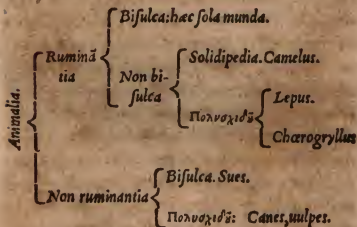 Animalia.
Ruminã
tia
Biſulca: hæc ſola munda.
Non bi-
ſulca
Solidipedia. Camelus.
Πολυσχιδῆ
Lepus.
Chœrogryllus
Non ruminantia
Biſulca. Sues.
Πολυσχιδῆ: Canes, uulpes.